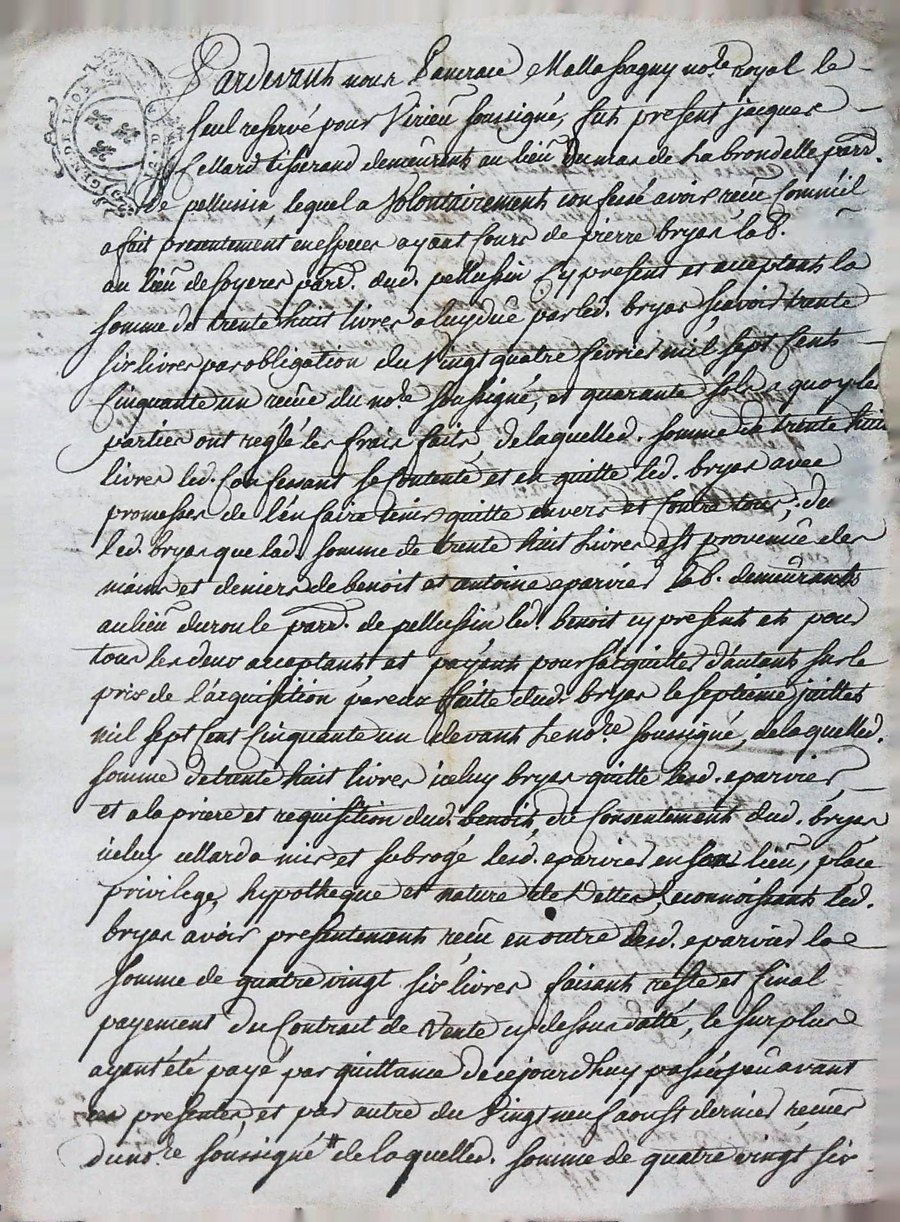 GEN. DE LYON
Pardevant nous Pancrace Mallassagny nore. royal le
seul reservé pour Virieu soussigné, fut present jacques
Cellard tisserand demeurent au lieu dumas de la brondelle parr.
de pellussin, lequel a Volontairement confessé avoir recu Comme il
a fait presentement en especes ayant Cours de pierre bryas lab.
au lieu de soyeres parr. dud. pellussin Cy present et acceptant la
somme de trente huit livres a luy düe par led. bryas scavoir trente
six livres par obligation du Vingt quatre fevrier mil sept Cents
Cinquante un recüe du nore. soussigné, et quarante sols a quoy les
parties ont reglé les frais faits, de laquelled. somme de trente huit
livres led. Confessant se Contente et en quitte led. bryas avec
promesses de l'en faire tenir quitte envers et Contre tous; du
led. bryas que lad. somme de trente huit Livres est provenüe des
mains et deniers de benoit et antoine eparvier lab. demeurants
au lieu du roule parr. de pellussin led. benoit cy present et pour
tous les deux acceptant et payant pour s'acquitter d'autant sur le
prix de l'acquisition par eux faitte dud. bryas le septieme juillet
mil sept Cent Cinquante un devant Le nore. soussigné, de laquelled.
somme de trente huit livres iceluy bryas quitte lesd. eparvier,
et a la priere et requisition dud. benoit, du Consentement dud. bryas
iceluy cellard a mis et subrogé lesd. eparvier en son lieu, place
privilege, hypotheque et nature de dettes, reconnoissant led.
bryas avoir presentement recu en outre desd. eparvier la
somme de quatre vingt six livres faisant reste et final
payement du Contrat de Vente cy dessus datté, le surplus
ayant été payé par quittance de cejourdhuy passée peu avant
ces presentes, et par autre du Vingt neuf aoust dernier recues
du nore. soussigné de laquelled. somme de quatre vingt six